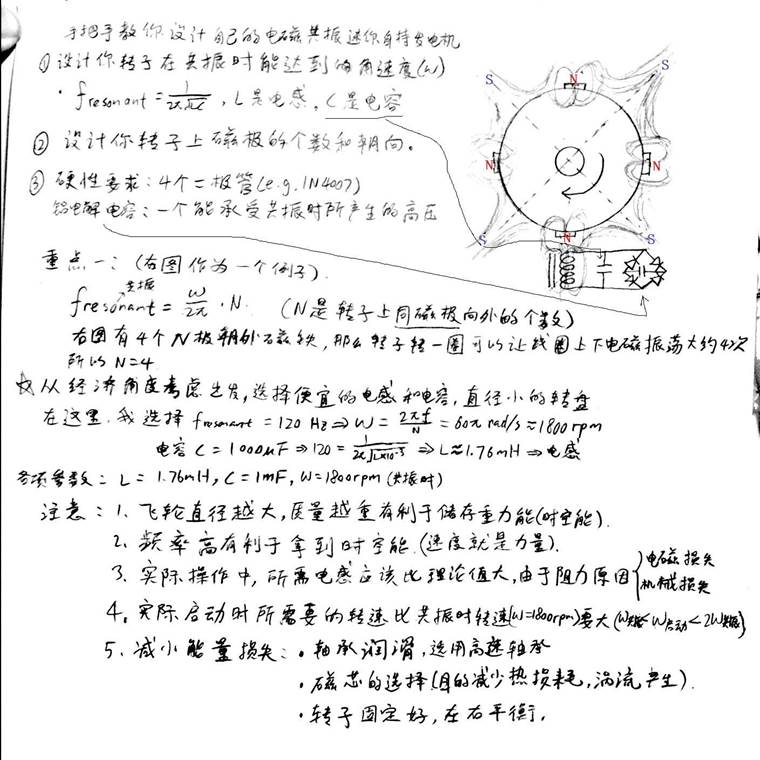 手把手教你设计自己的电磁共振迷你自持发电机
① 设计你转子在共振时能达到的角速度(ω)
· fresonant = 1/2π√LC , L是电感, C是电容
② 设计你转子上磁极的个数和朝向。
③ 硬性要求: 4个二极管(e.g. 1N4007)
铝电解电容: 一个能承受共振时所产生的高压
重点一: (右图作为一个例子).
共振
fresonant = ω/2π · N. (N是转子上同磁极向外的个数)
右图有4个N极朝外磁铁, 那么转子转一圈可以让线圈上下电磁振荡大约4次
所以 N=4
☆从经济角度考虑出发, 选择便宜的电感和电容, 直径小的转盘
在这里, 我选择 fresonant = 120 Hz ⇒ ω = 2πf/N = 60π rad/s ≈ 1800 rpm
电容 C = 1000μF ⇒ 120 = 1/2π√L×10⁻³ ⇒ L ≈ 1.76mH ⇒ 电感
各项参数: L = 1.76mH, C = 1mF, ω = 1800rpm (共振时)
注意: 1. 飞轮直径越大, 质量越重有利于储存重力能(时空能).
2. 频率高有利于拿到时空能. (速度就是力量).
3. 实际操作中, 所需电感应该比理论值大, 由于阻力原因{电磁损失 机械损失
4. 实际启动时所需要的转速比共振时转速(ω=1800rpm)要大(ω共振<ω启动<2ω共振)
5. 减小能量损失: · 轴承润滑, 选用高速轴承
· 磁芯的选择(目的减少热损耗, 涡流产生).
· 转子固定好, 左右平衡,
S
N
S
N
N
S
N
S